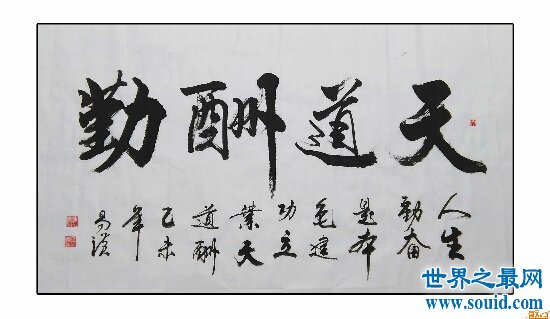 天道酬勤
人生
勤奋
是本
色建
功立
業天
道酬
乙未
年
世界之最网
www.souid.com